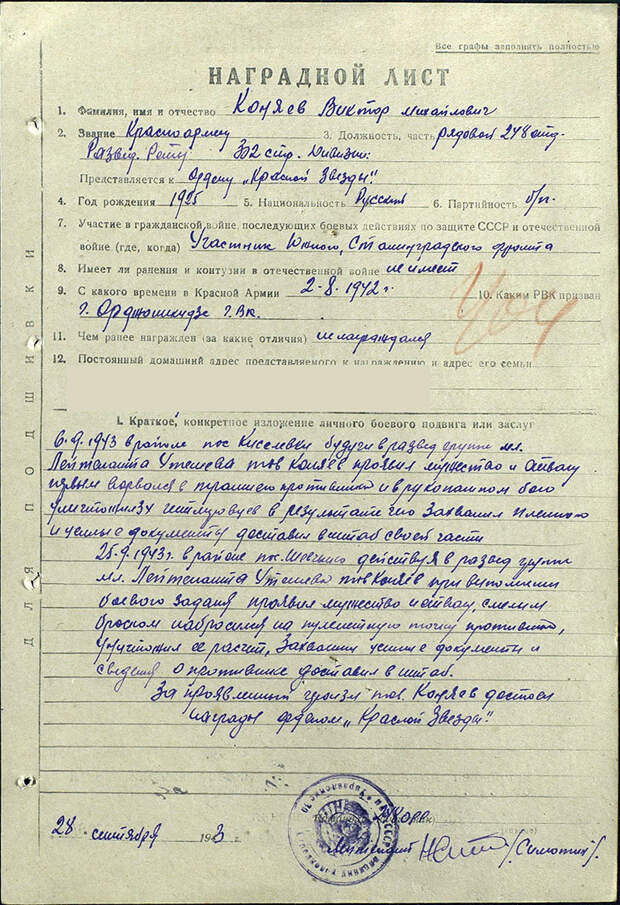 Все графы заполнять полностью
НАГРАДНОЙ ЛИСТ
1. Фамилия, имя и отчество Коняев Виктор Михайлович
2. Звание Красноармеец 3. Должность, часть рядовой 248 отд.
Развед. Роты 302 стр. дивизии
Представляется к Ордену „Красной Звезды"
4. Год рождения 1925 5. Национальность Русский 6. Партийность б/п
7. Участие в гражданской войне, последующих боевых действиях по защите СССР и отечественной
войне (где, когда) Участник Южного, Сталинградского фронта
8. Имеет ли ранения и контузии в отечественной войне не имеет
9. С какого времени в Красной Армии 2-8-1942 г. 10. Каким РВК призван
г. Орджоникидзе Г.В.К.
11. Чем ранее награжден (за какие отличия) не награждался
12. Постоянный домашний адрес представляемого к награждению и адрес его семьи
I. Краткое, конкретное изложение личного боевого подвига или заслуг
6.9.1943 в районе пос Киселевки будучи в развед группе мл.
Лейтенанта Утешева тов Коняев проявил мужество и отвагу
первым ворвался в траншею противника и в рукопашном бою
уничтожил 3х гитлеровцев в результате чего захватил пленного
и ценные документы доставил в штаб своей части
25.9.1943г. в районе пос. действуя в развед группе
мл. Лейтенанта Утешева тов Коняев при выполнении
боевого задания проявил мужество и отвагу, смелым
броском набросился на пулеметную точку противника,
уничтожил ее расчет, захватил ценные документы и
сведения о противнике доставил в штаб.
За проявленный героизм тов. Коняев достоин
награды орденом „Красной Звезды"
28 сентября 1943 г.
/Симотин/
ДЛЯ ПОДШИВКИ